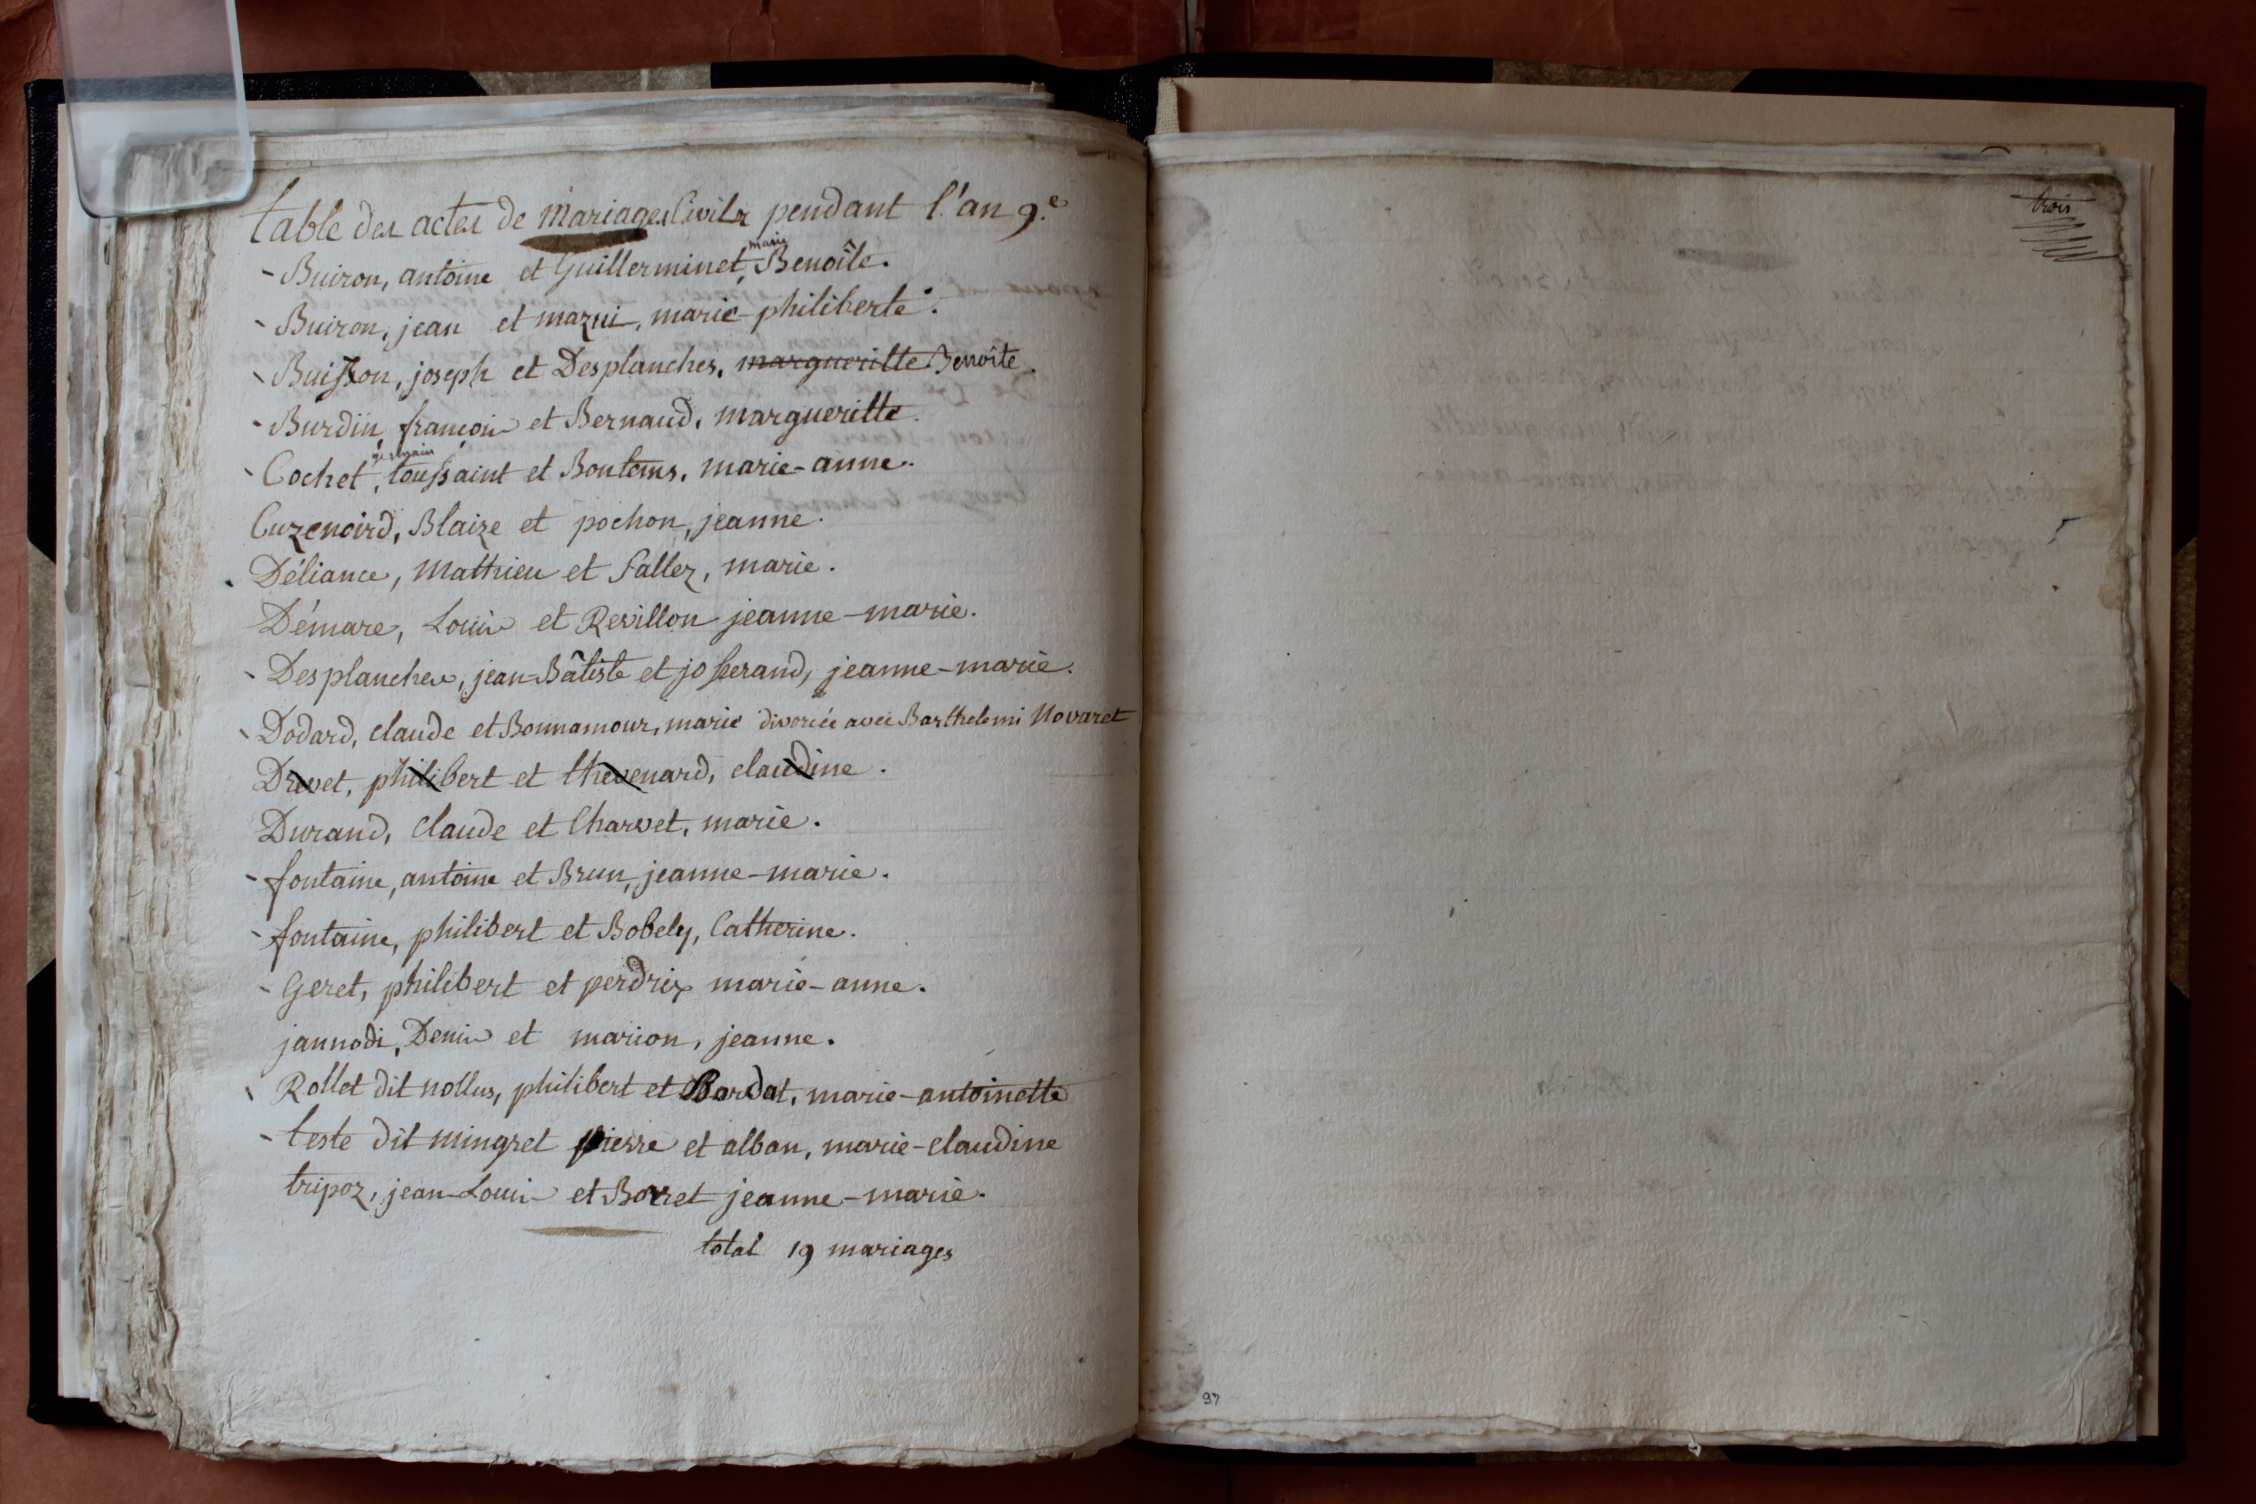 table des actes de mariages Civils pendant l'an 9.e
- Buiron, antoine et Guillerminet, marie Benoîte.
- Buiron, jean et mazui, marie-philiberte.
- Buisson, joseph et Desplanches, marguerite Benoîte.
- Burdin, françois et Bernaud, margueritte.
- Cochet, germain toussaint et Boutems, marie-anne.
Cuzenoird, Blaize et pochon, jeanne.
Déliance, Mathieu et fallez, marie.
Démare, Louis et Revillon jeanne-marie.
- Desplanches, jean-Bâtiste et josserand, jeanne-marie.
- Dodard, claude et Bonnamour, marie divorcée avec Barthelemi Novaret
Drevet, philibert et thevenard, claudine.
Durand, claude et Charvet, marie.
- fontaine, antoine et Brun, jeanne-marie.
- fontaine, philibert et Bobely, Catherine.
- Geret, philibert et perdrix marie-anne.
jannodi, Denis et marion, jeanne.
- Rollet dit nollus, philibert et Bardat, marie-antoinette
- teste dit mingret pierre et alban, marie-claudine
tripoz, jean-Louis et Borret jeanne-marie.
total 19 mariages
trois
97